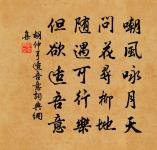 嘲風咏月天
問花尋柳地
隨遇可行樂
但欲適吾意
胡仲弓適吾意詞典網
集